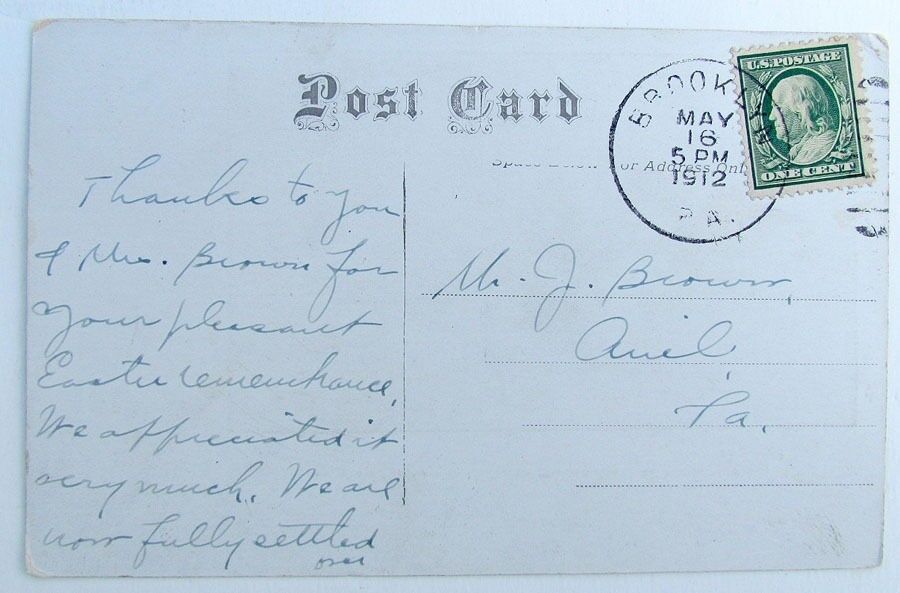 Post Card
Space Below For Address Only
BROOK
MAY
16
5 PM
1912
PA.
U.S. POSTAGE
ONE CENT
Thanks to you
& Mrs. Brown for
your pleasant
Easter remembrance.
We appreciated it
very much. We are
now fully settled
over
Mr. J. Brown,
Ariel,
Pa.